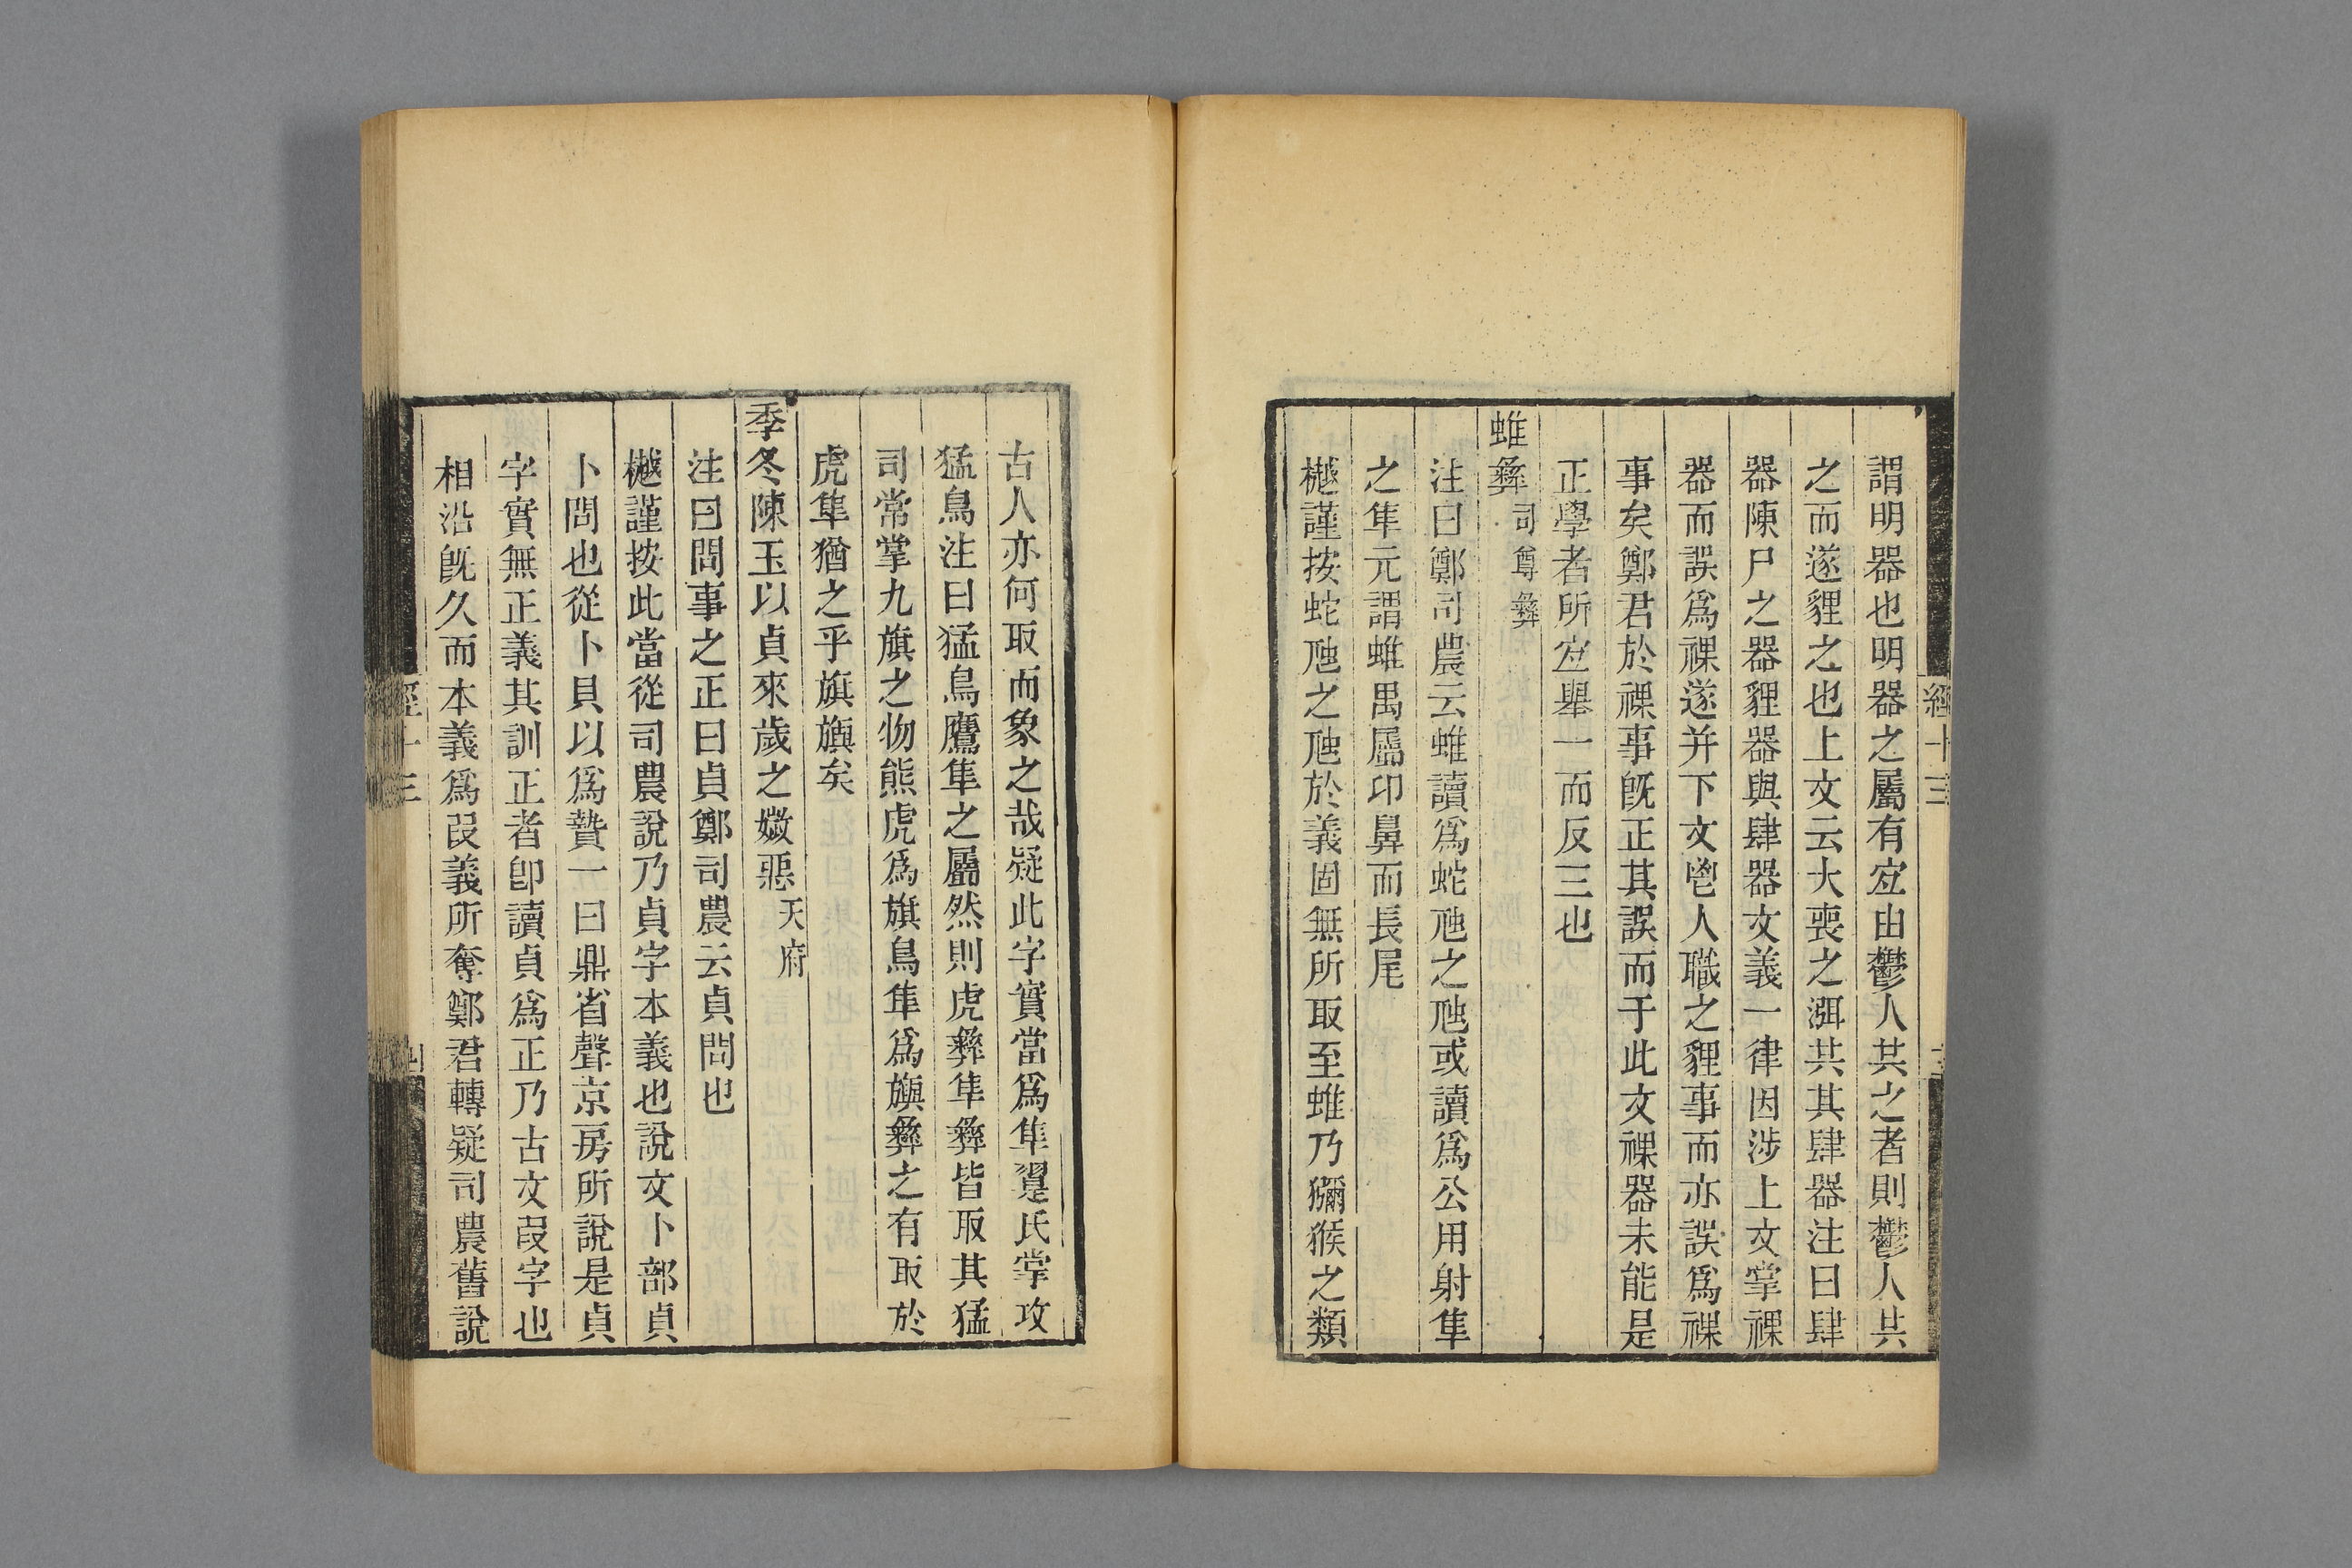 謂明器也明器之屬有宐由鬱人共之者則鬱人共
之而遂貍之也上文云大喪之渳共其肆器注曰肆
器陳尸之器貍器與肆器文義一律因涉上文掌祼
器而誤爲祼遂并下文鬯人職之貍事而亦誤爲祼
事矣鄭君於祼事旣正其誤而于此文祼器未能是
正學者所宐舉一而反三也
蜼彝司尊彝
注曰鄭司農云蜼讀爲蛇虺之虺或讀爲公用射隼
之隼元謂蜼禺屬卬鼻而長尾
樾謹按蛇虺之虺於義固無所取至蜼乃獼猴之類
古人亦何取而象之哉疑此字實當爲隼翨氏掌攻
猛鳥注曰猛鳥鷹隼之屬然則虎彝隼彝皆取其猛
司常掌九旗之物熊虎爲旗鳥隼爲旟彝之有取於
虎隼猶之乎旗旟矣
季冬陳玉以貞來歲之媺惡天府
注曰問事之正曰貞鄭司農云貞問也
樾謹按此當從司農說乃貞字本義也說文卜部貞
卜問也從卜貝以爲贄一曰鼎省聲京房所說是貞
字實無正義其訓正者卽讀貞爲正乃古文叚字也
相沿旣久而本義爲叚義所奪鄭君轉疑司農舊說
經十三